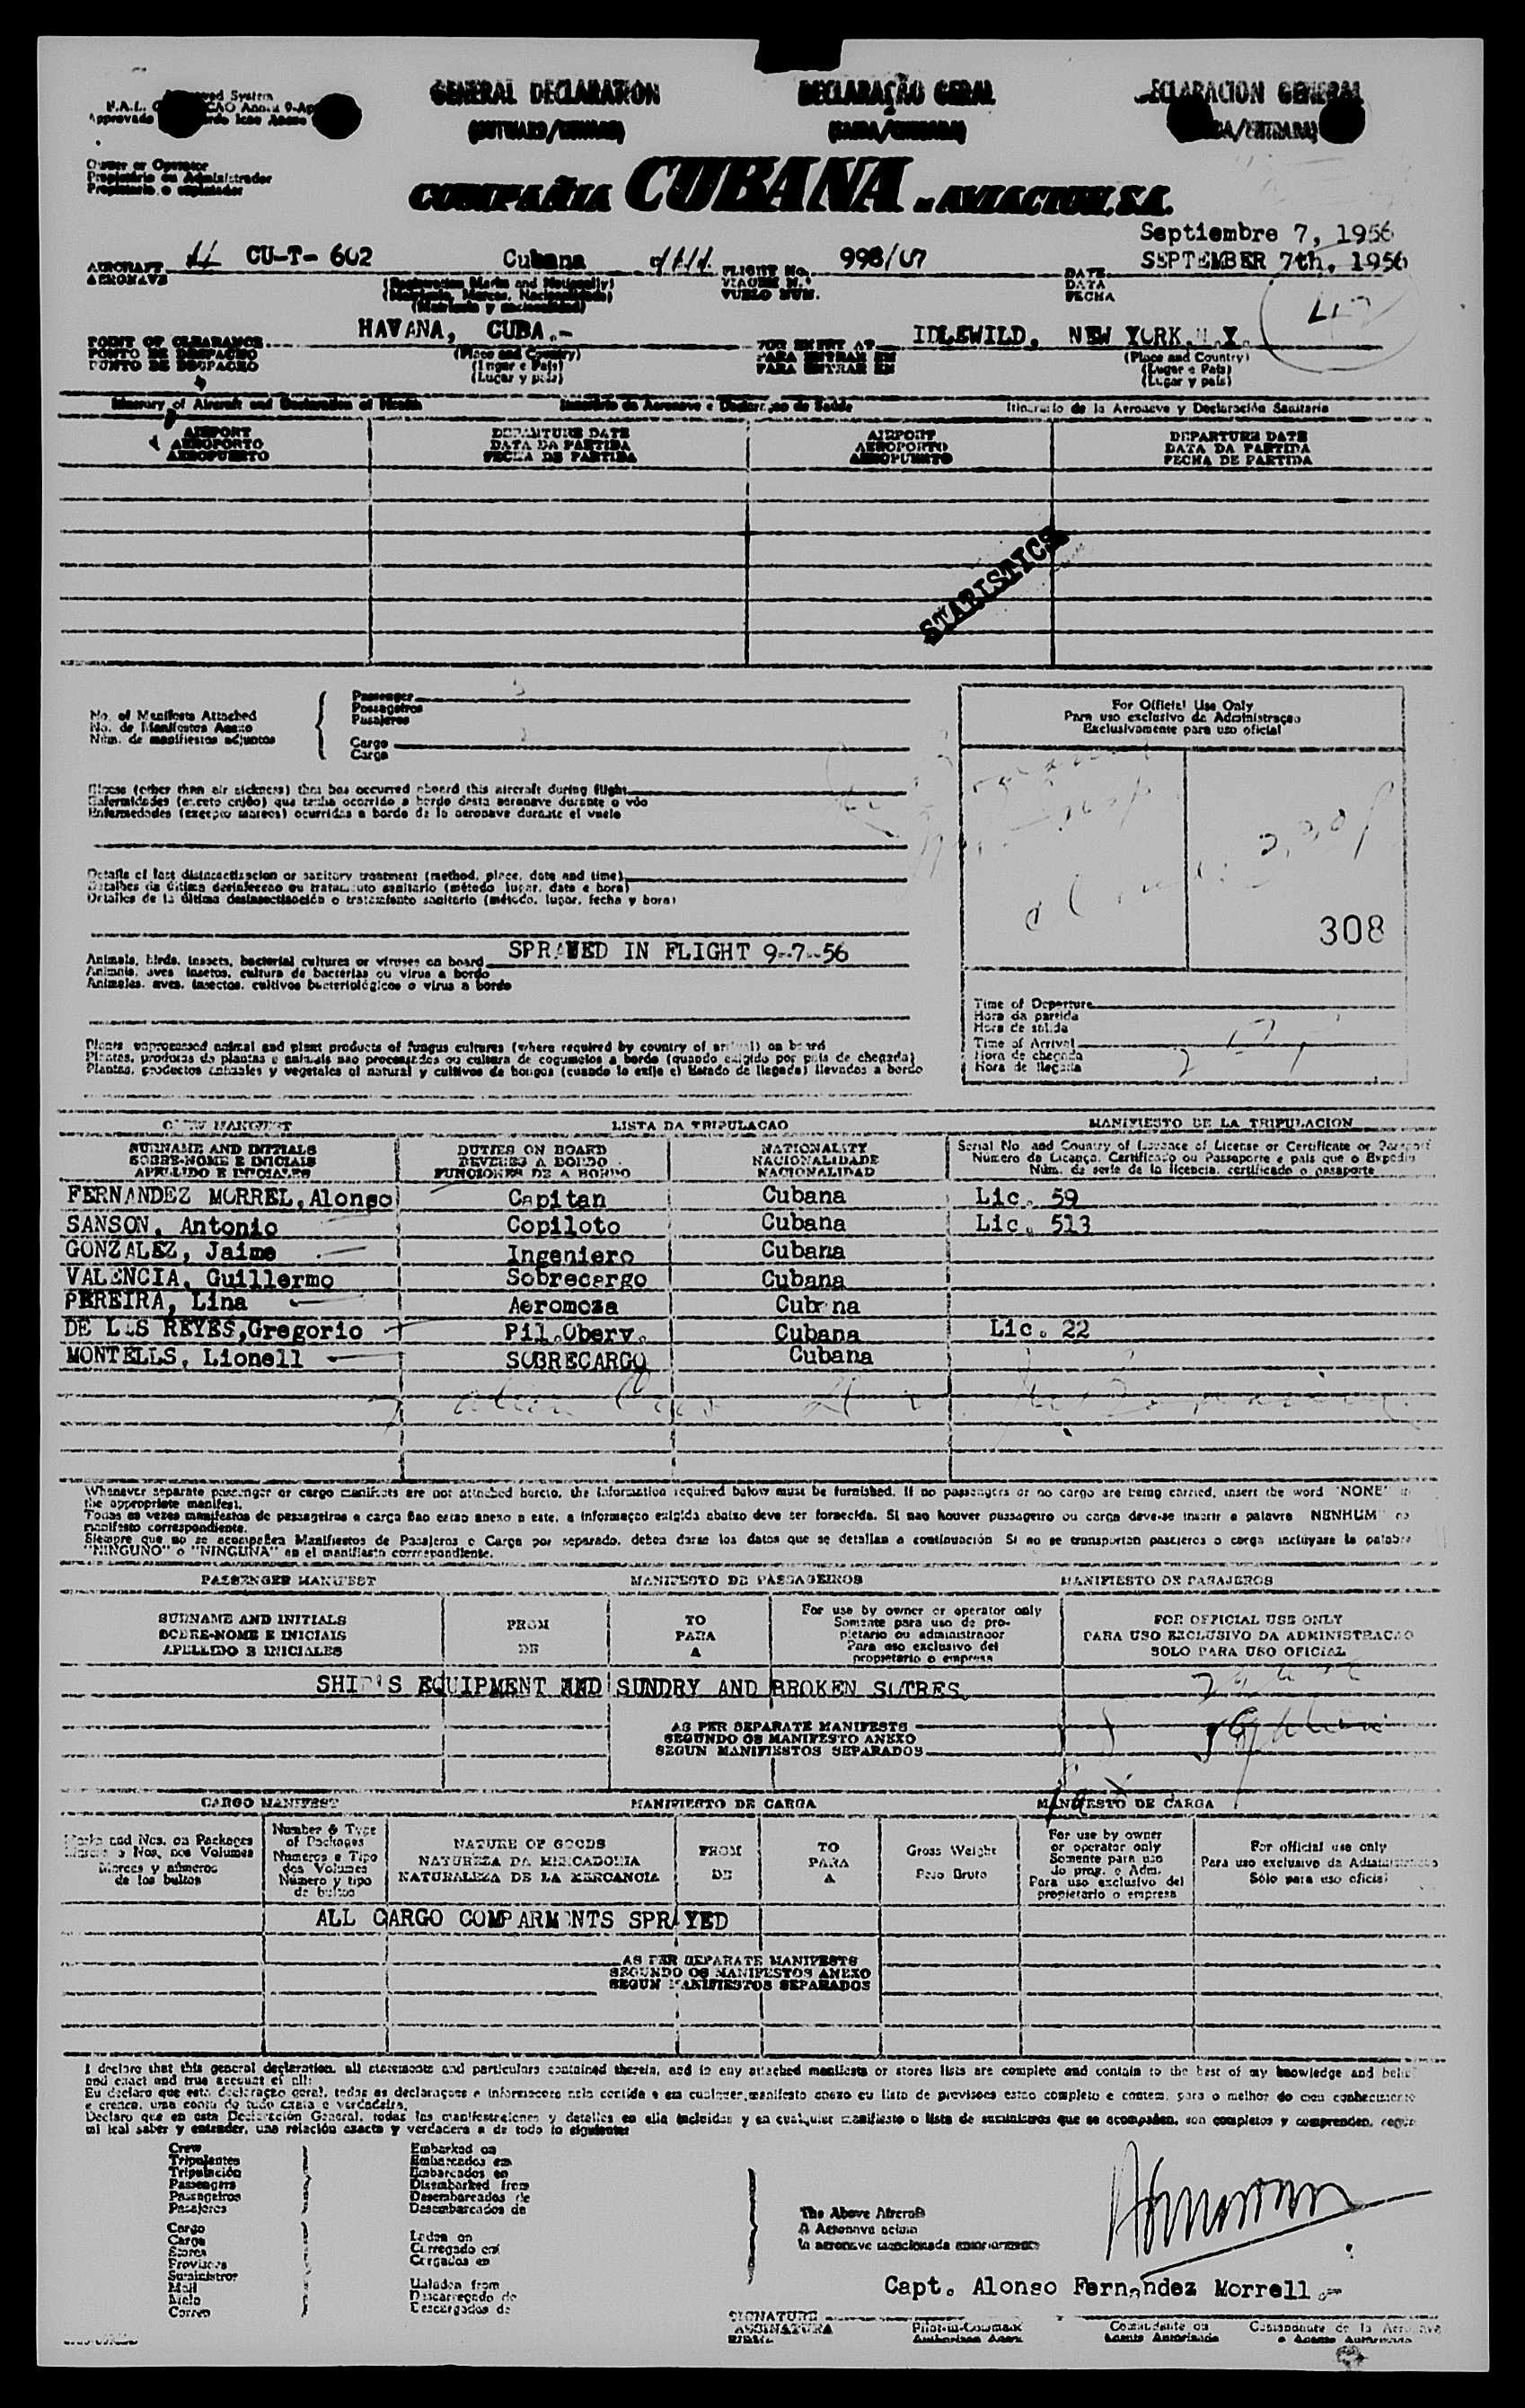 GENERAL DECLARATION DECLARAÇÃO GERAL DECLARACION GENERAL
(OUTWARD/INWARD)
Owner or Operator
Propietário ou Administrador
Propietario o explotador
COMPAÑIA CUBANA DE AVIACION, S.A.
Septiembre 7, 1956
SEPTEMBER 7th. 1956
AIRCRAFT CU-T- 602 Cubana FLIGHT No. 998/07 DATE
AERONAVE (Registration Marks and Nationality) VUELO NUM. DATA
FECHA
POINT OF CLEARANCE HAVANA, CUBA.- FOR ENTRY AT IDLEWILD, NEW YORK.N.Y.
PONTO DE DESPACHO (Place and Country) PARA ENTRAR EM (Place and Country)
PUNTO DE DESPACHO (Lugar y país) PARA ENTRAR EN (Lugar y país)
Itinerary of Aircraft and Declaration of Health Itinerário da Aeronave e Declaração de Saúde Itinerario de la Aeronave y Declaración Sanitaria
AIRPORT DEPARTURE DATE AIRPORT DEPARTURE DATE
AEROPORTO DATA DA PARTIDA AEROPORTO DATA DA PARTIDA
AEROPUERTO FECHA DE PARTIDA AEROPUERTO FECHA DE PARTIDA
STATISTICS
No. of Manifests Attached Passenger
No. de Manifestos Anexo Passageiros
Núm. de manifiestos adjuntos Pasajeros
Cargo
Carga
For Official Use Only
Para uso exclusivo da Administraçao
Exclusivamente para uso oficial
Illness (other than air sickness) that has occurred aboard this aircraft during flight
Enfermidades (exceto enjôo) que tenha ocorrido a bordo desta aeronave durante o vôo
Enfermedades (excepto mareos) ocurridas a bordo de la aeronave durante el vuelo
Details of last disinsectization or sanitary treatment (method, place, date and time)
Detalhes da última desinfeccao ou tratamento sanitario (método lugar, data e hora)
Detalles de la última desinsectización o tratamiento sanitario (método, lugar, fecha y hora)
308
SPRAYED IN FLIGHT 9-7-56
Animals, birds, insects, bacterial cultures or viruses on board
Animais, aves insetos, cultura de bactérias ou vírus a bordo
Animales, aves, insectos, cultivos bacteriológicos o virus a bordo
Time of Departure
Hora da partida
Hora de salida
Time of Arrival
Hora de chegada
Hora de llegada
Plants unprocessed animal and plant products of fungus cultures (where required by country of arrival) on board
Plantas, produtos de plantas e animais nao processados ou cultura de cogumelos a bordo (quando exigido por país de chegada)
Plantas, productos animales y vegetales al natural y cultivos de hongos (cuando lo exija el Estado de llegada) llevados a bordo
CREW MANIFEST LISTA DA TRIPULACAO MANIFIESTO DE LA TRIPULACION
SURNAME AND INITIALS DUTIES ON BOARD NATIONALITY Serial No and Country of Issuance of License or Certificate or Passport
SOBRE-NOME E INICIAIS DEVERES A BORDO NACIONALIDADE Número da Licança, Certificado ou Passaporte e país que o Expediu
APELLIDO E INICIALES FUNCIONES DE A BORDO NACIONALIDAD Núm. de serie de la licencia, certificado o pasaporte
FERNANDEZ MORREL,Alonso Capitan Cubana Lic. 59
SANSON, Antonio Copiloto Cubana Lic. 513
GONZALEZ, Jaime Ingeniero Cubana
VALENCIA, Guillermo Sobrecargo Cubana
PEREIRA, Lina Aeromoza Cubana
DE LOS REYES,Gregorio Pil.Oberv. Cubana Lic. 22
MONTELLS, Lionell SOBRECARGO Cubana
Whenever separate passenger or cargo manifests are not attached hereto, the information required below must be furnished. If no passengers or no cargo are being carried, insert the word "NONE" in
the appropriate manifest.
Todas as vezes manifestos de passageiros e carga nao estao anexo a este, a informaçao exigida abaixo deve ser fornecida. Si nao houver passageiro ou carga deve-se inserir a palavra NENHUM" no
manifesto correspondiente.
Siempre que no se acompañen Manifiestos de Pasajeros o Carga por separado, deben darse los datos que se detallan a continuación Si no se transportan pasajeros o carga inclúyase la palabra
"NINGUNO" o "NINGUNA" en el manifiesto correspondiente.
PASSENGER MANIFEST MANIFESTO DE PASSAGEIROS MANIFIESTO DE PASAJEROS
SURNAME AND INITIALS FROM TO For use by owner or operator only FOR OFFICIAL USE ONLY
SOBRE-NOME E INICIAIS DE PARA Somente para uso de pro- PARA USO EXCLUSIVO DA ADMINISTRACAO
APELLIDO E INICIALES A pietario ou administrador SOLO PARA USO OFICIAL
Para uso exclusivo del
propietario o empresa
SHIP'S EQUIPMENT AND SUNDRY AND BROKEN SOTRES
AS PER SEPARATE MANIFESTS
SEGUNDO OS MANIFESTO ANEXO
SEGUN MANIFIESTOS SEPARADOS
CARGO MANIFEST MANIFIESTO DE CARGA MANIFIESTO DE CARGA
Marks and Nos. on Packages Number & Type of Packages NATURE OF GOODS FROM TO Gross Weight For use by owner or operator only For official use only
Marcas o Nos. nos Volumes Numeros e Tipo dos Volumes NATUREZA DA MERCADORIA DE PARA Peso Bruto Somente para uso do prop. o Adm. Para uso exclusivo da Administracao
Marcas y números de los bultos Número y tipo de bultos NATURALEZA DE LA MERCANCIA A Para uso exclusivo del propietario o empresa Sólo para uso oficial
ALL CARGO COMPARMENTS SPRAYED
AS PER SEPARATE MANIFESTS
SEGUNDO OS MANIFESTOS ANEXO
SEGUN MANIFIESTOS SEPARADOS
I declare that this general declaration, all statements and particulars contained therein, and in any attached manifests or stores lists are complete and contain to the best of my knowledge and belief
and exact and true account of all:
Eu declaro que esta declaraçao geral, todas as declaraçoes e informacoes nela contida e em cualquer manifesto anexo ou lista de provisoes estao completo e contem, para o melhor do meu conhecimento
e crenca, uma conta de tudo exata e verdadeira.
Declaro que en esta Declaración General, todas las manifestaciones y detalles en ella incluidos y en cualquier manifiesto o lista de suministros que se acompañen, son completos y comprenden, según
mi leal saber y entender, una relación exacta y verdadera a de todo lo siguiente
Crew Embarked on
Tripulantes Embarcados em
Tripulación Embarcados en
Passengers Disembarked from
Passageiros Desembarcados de
Pasajeros Desembarcados de
The Above Aircraft
A Aeronave acima
la aeronave mencionada anteriormente
Cargo Laden on
Carga Carregado em
Stores Cargados en
Provisoes
Suministros
Mail Unladen from
Malo Descarregado de
Correo Descargados de
Capt. Alonso Fernandez Morrell.-
SIGNATURE Pilot-in-Command Comandante ou Comandante de la Aeronave
ASSINATURA Authorized Agent Agente Autorizado o Agente Autorizado
FIRMA